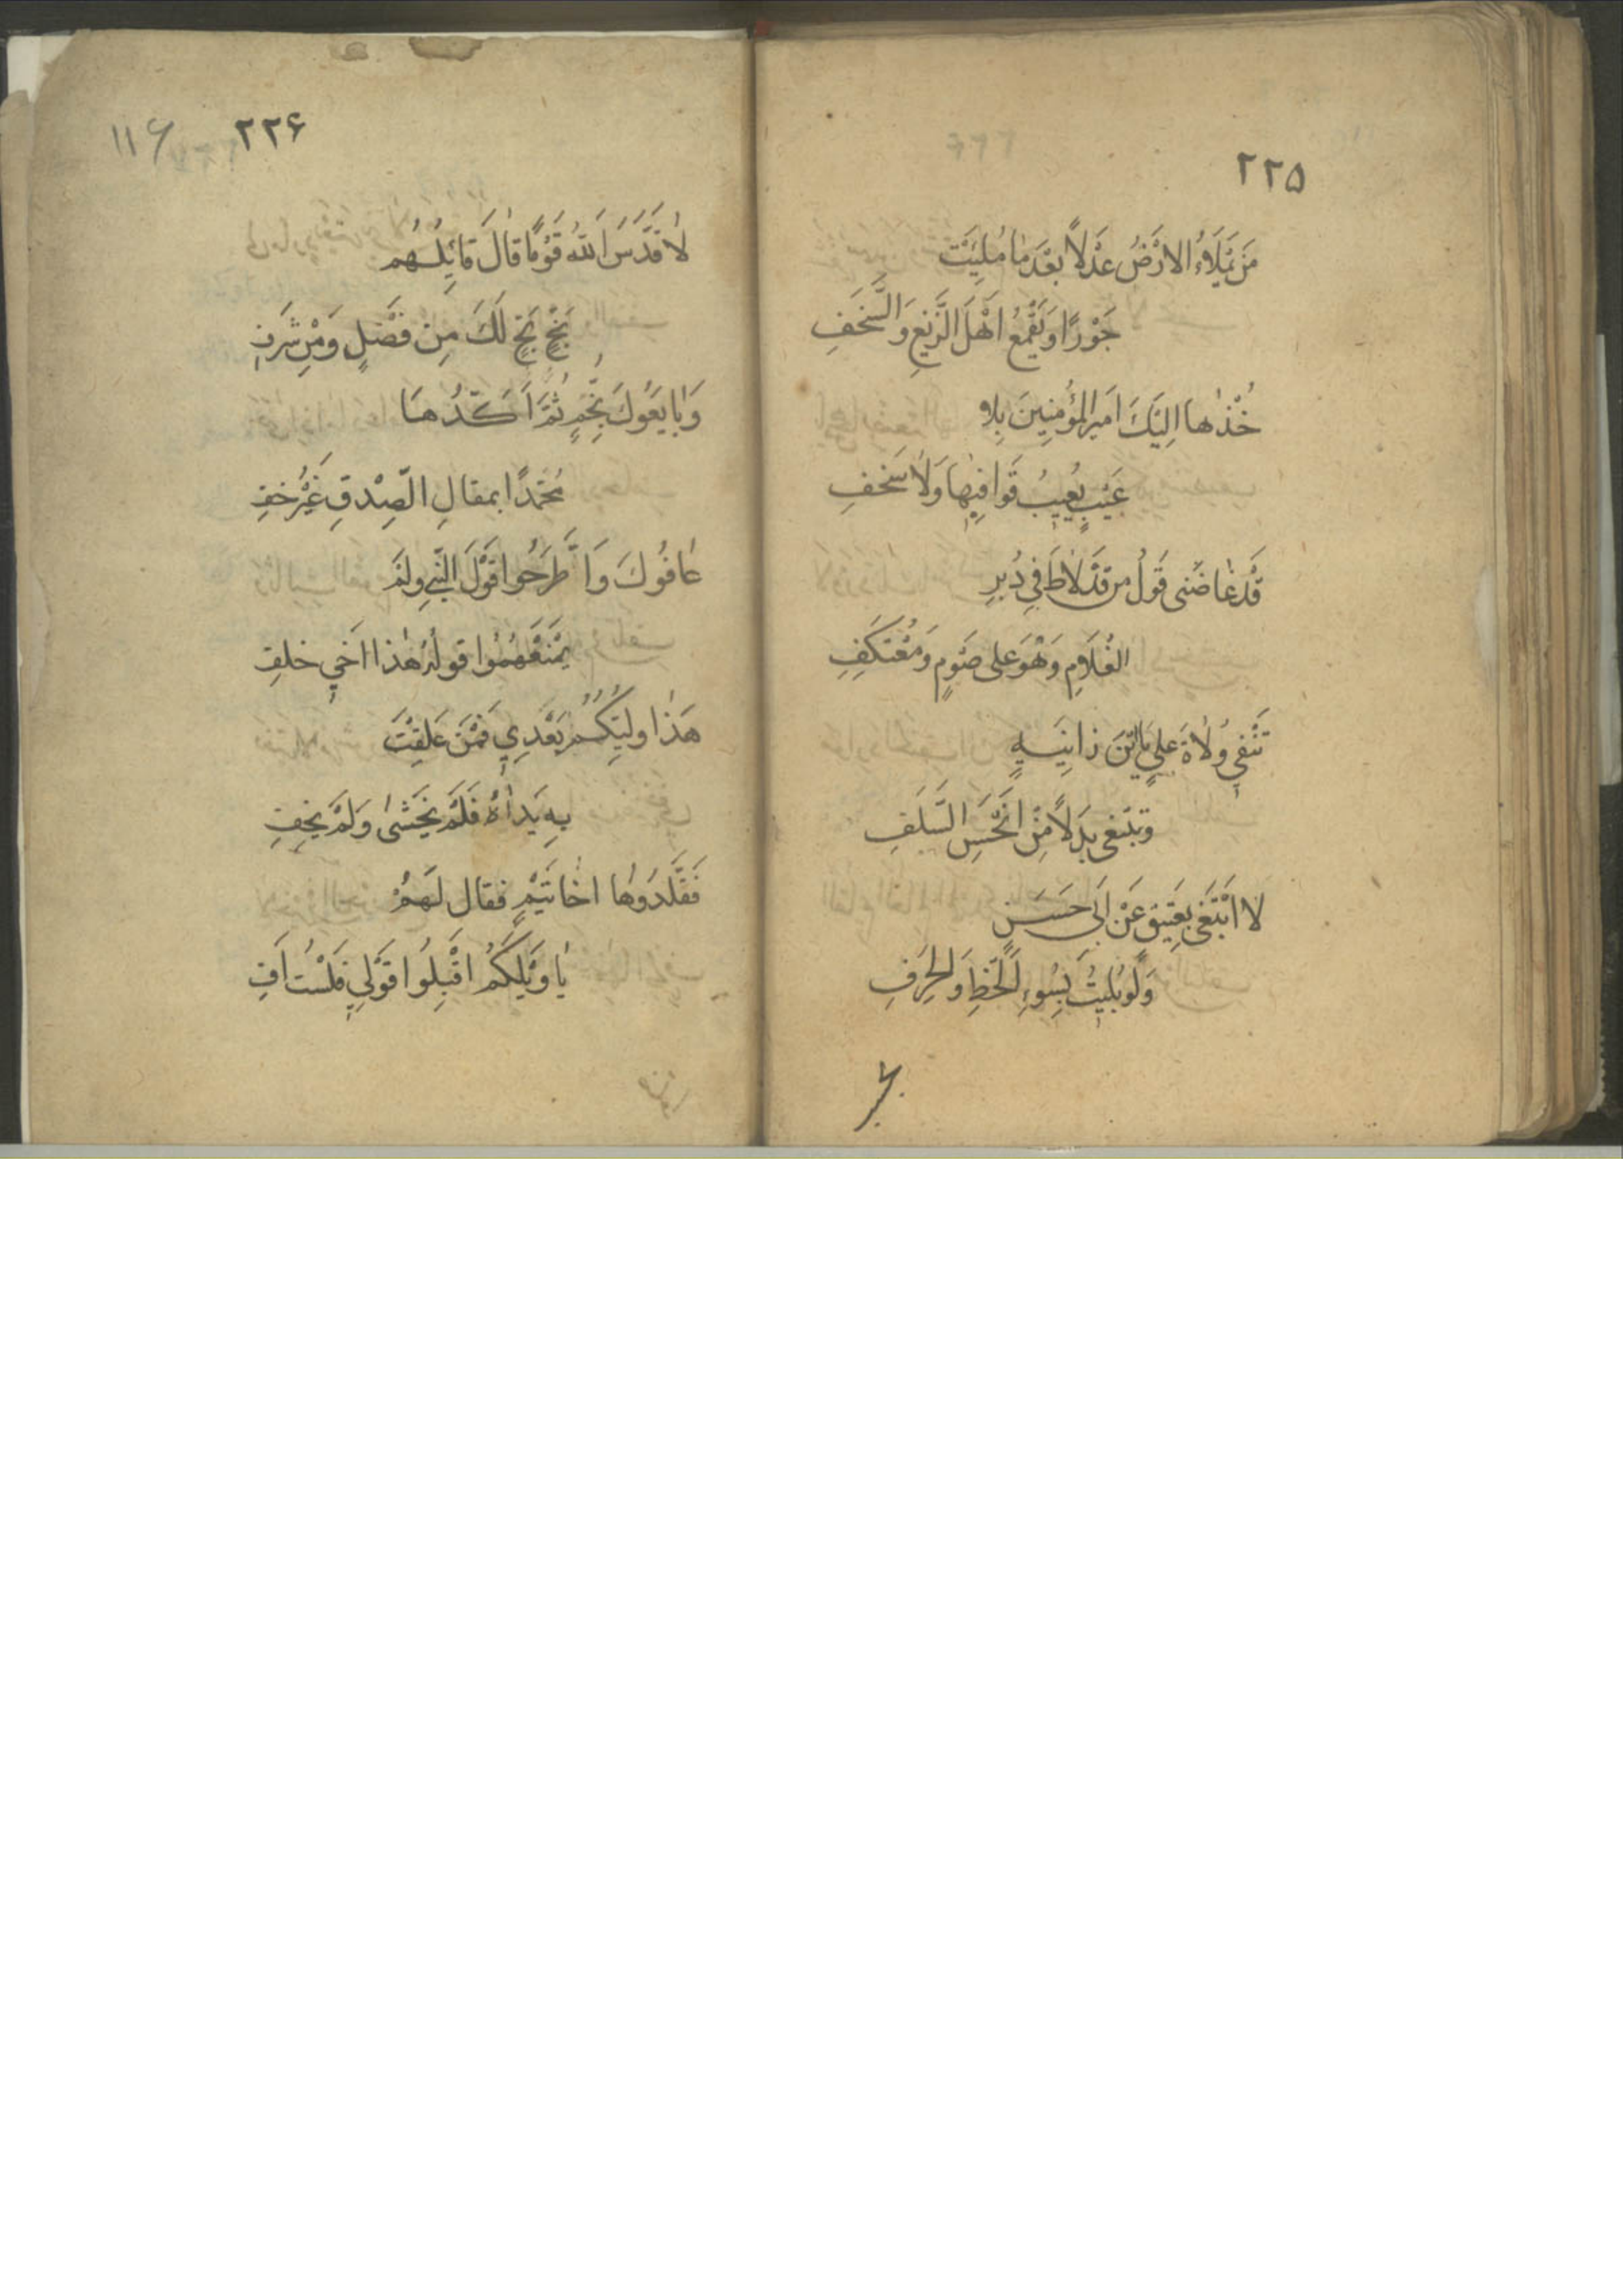 ٢٢۵
مَن يَمْلَاءُ الارْضُ عَدْلاً بَعْدَ مٰا مُلِيَتْ
جَوْرًا وَيَقْمَعُ اَهْلَ الزَّيْغِ وَالسَّخَفِ
خُذْهٰا اِلَيْكَ اَميرَ المؤُمنِينَ بِلاٰ
عَيْبٍ يُعِيبُ قَوٰافِيهٰا وَلاٰ سَخفِ
قَدْ عٰاضَنى قَوْلُ من قَدْ لاٰطَ فِي دُبرِ
الغُلاٰمِ وَهُوَ على صَوْمٍ وَمُعْتَكَفِ
تَنْفِي وُلاٰةَ عَلِيٍ يَاابْنَ زٰانِيَةٍ
وَتبْتَغى بَدَلاً مِنْ اَنْحَسِ السَّلَفِ
لاٰ اَبْتَغى بِعَتِيقٍ عَنْ اَبى حَسَنٍ
وَلَو بُليتُ بِسُوءِ الْحَظِ وَالحَرَفِ
٢٢۶
١١۶
لاٰ قَدَّسَ اَللهُ قَوْمًا قٰالَ قٰائِلُهُم
بَخٍ بَخٍ لَكَ مِن فَضْلٍ وَمْنِ شَرَفِ
وَبٰايَعُوكَ بِخُمٍ ثُمَّ اَكَّدُهٰا
مُحَمَّدًا بمقالِ الصِّدقِ غَيْرُ خفِ
عٰافُوكَ وَاطَّرَحُوا قَوْلَ النَّبِي ولَمْ
يَمْنَعْهُمُوا قولُهُ هٰذا اَخِي خلفِ
هَذٰا وليِّكُمُ بَعْدِي فَمَنْ عَلِقَتْ
بِهِ يَدٰاهُ فَلَمْ يَخْشىٰ وَلَمْ يخفِ
فَقَلَّدَوُهٰا اخٰاتَيْمٍ فقال لَهَمُ
يٰا وَيْلَكُمْ اقْبِلُوا قَوْلِي فَلَسْتُ اَفِ